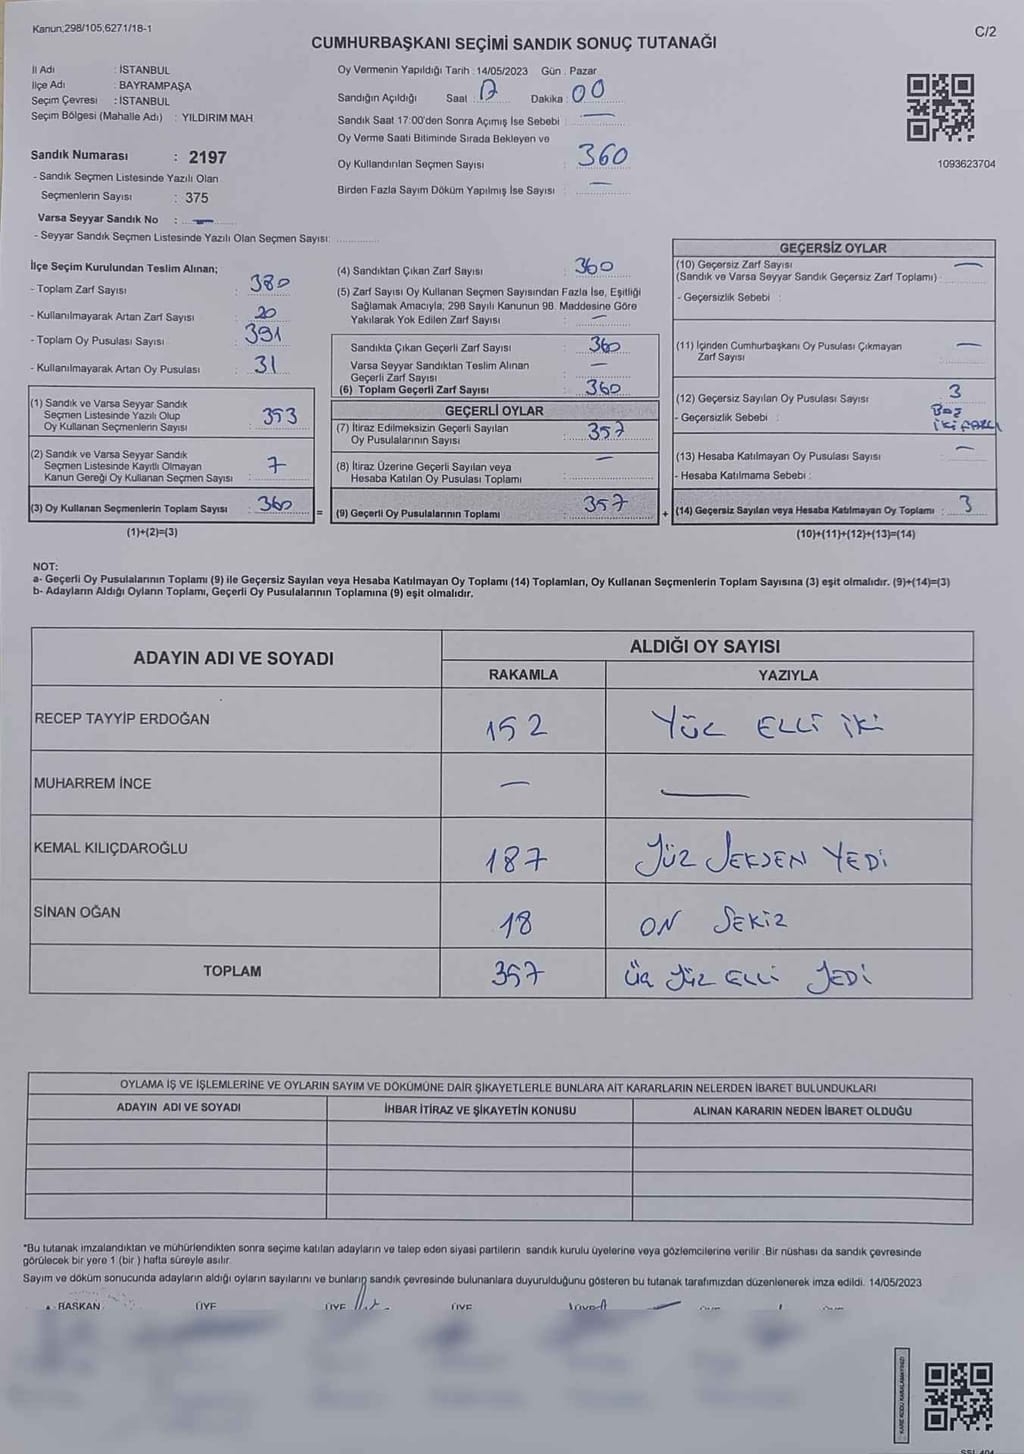 Kanun,298/105,6271/18-1
C/2
CUMHURBAŞKANI SEÇİMİ SANDIK SONUÇ TUTANAĞI
İl Adı : İSTANBUL
İlçe Adı : BAYRAMPAŞA
Seçim Çevresi : İSTANBUL
Seçim Bölgesi (Mahalle Adı) : YILDIRIM MAH
Sandık Numarası : 2197
- Sandık Seçmen Listesinde Yazılı Olan
Seçmenlerin Sayısı : 375
Varsa Seyyar Sandık No : —
- Seyyar Sandık Seçmen Listesinde Yazılı Olan Seçmen Sayısı:
Oy Vermenin Yapıldığı Tarih : 14/05/2023 Gün : Pazar
Sandığın Açıldığı Saat : 17 Dakika : 00
Sandık Saat 17:00'den Sonra Açımış İse Sebebi : —
Oy Verme Saati Bitiminde Sırada Bekleyen ve
Oy Kullandırılan Seçmen Sayısı : 360
Birden Fazla Sayım Döküm Yapılmış İse Sayısı : —
1093623704
İlçe Seçim Kurulundan Teslim Alınan;
- Toplam Zarf Sayısı : 380
- Kullanılmayarak Artan Zarf Sayısı : 20
- Toplam Oy Pusulası Sayısı : 391
- Kullanılmayarak Artan Oy Pusulası : 31
(1) Sandık ve Varsa Seyyar Sandık
Seçmen Listesinde Yazılı Olup
Oy Kullanan Seçmenlerin Sayısı : 353
(2) Sandık ve Varsa Seyyar Sandık
Seçmen Listesinde Kayıtlı Olmayan
Kanun Gereği Oy Kullanan Seçmen Sayısı : 7
(3) Oy Kullanan Seçmenlerin Toplam Sayısı : 360
(1)+(2)=(3)
=
(4) Sandıktan Çıkan Zarf Sayısı : 360
(5) Zarf Sayısı Oy Kullanan Seçmen Sayısından Fazla İse, Eşitliği
Sağlamak Amacıyla; 298 Sayılı Kanunun 98. Maddesine Göre
Yakılarak Yok Edilen Zarf Sayısı : —
Sandıkta Çıkan Geçerli Zarf Sayısı : 360
Varsa Seyyar Sandıktan Teslim Alınan
Geçerli Zarf Sayısı : —
(6) Toplam Geçerli Zarf Sayısı : 360
GEÇERLİ OYLAR
(7) İtiraz Edilmeksizin Geçerli Sayılan
Oy Pusulalarının Sayısı : 357
(8) İtiraz Üzerine Geçerli Sayılan veya
Hesaba Katılan Oy Pusulası Toplamı : —
(9) Geçerli Oy Pusulalarının Toplamı : 357
+
GEÇERSİZ OYLAR
(10) Geçersiz Zarf Sayısı : —
(Sandık ve Varsa Seyyar Sandık Geçersiz Zarf Toplamı) :
- Geçersizlik Sebebi :
(11) İçinden Cumhurbaşkanı Oy Pusulası Çıkmayan
Zarf Sayısı : —
(12) Geçersiz Sayılan Oy Pusulası Sayısı : 3
- Geçersizlik Sebebi :
(13) Hesaba Katılmayan Oy Pusulası Sayısı : —
- Hesaba Katılmama Sebebi :
(14) Geçersiz Sayılan veya Hesaba Katılmayan Oy Toplamı : 3
(10)+(11)+(12)+(13)=(14)
NOT:
a- Geçerli Oy Pusulalarının Toplamı (9) ile Geçersiz Sayılan veya Hesaba Katılmayan Oy Toplamı (14) Toplamları, Oy Kullanan Seçmenlerin Toplam Sayısına (3) eşit olmalıdır. (9)+(14)=(3)
b- Adayların Aldığı Oyların Toplamı, Geçerli Oy Pusulalarının Toplamına (9) eşit olmalıdır.
ADAYIN ADI VE SOYADI
ALDIĞI OY SAYISI
RAKAMLA YAZIYLA
RECEP TAYYİP ERDOĞAN 152 YÜZ ELLİ İKİ
MUHARREM İNCE — —
KEMAL KILIÇDAROĞLU 187 YÜZ SEKSEN YEDİ
SİNAN OĞAN 18 ON SEKİZ
TOPLAM 357 ÜÇ YÜZ ELLİ YEDİ
OYLAMA İŞ VE İŞLEMLERİNE VE OYLARIN SAYIM VE DÖKÜMÜNE DAİR ŞİKAYETLERLE BUNLARA AİT KARARLARIN NELERDEN İBARET BULUNDUKLARI
ADAYIN ADI VE SOYADI İHBAR İTİRAZ VE ŞİKAYETİN KONUSU ALINAN KARARIN NEDEN İBARET OLDUĞU
*Bu tutanak imzalandıktan ve mühürlendikten sonra seçime katılan adayların ve talep eden siyasi partilerin sandık kurulu üyelerine veya gözlemcilerine verilir. Bir nüshası da sandık çevresinde
görülecek bir yere 1 (bir ) hafta süreyle asılır.
Sayım ve döküm sonucunda adayların aldığı oyların sayılarını ve bunların sandık çevresinde bulunanlara duyurulduğunu gösteren bu tutanak tarafımızdan düzenlenerek imza edildi. 14/05/2023
BAŞKAN ÜYE ÜYE ÜYE
KARE KODU KARALAMAYINIZ!